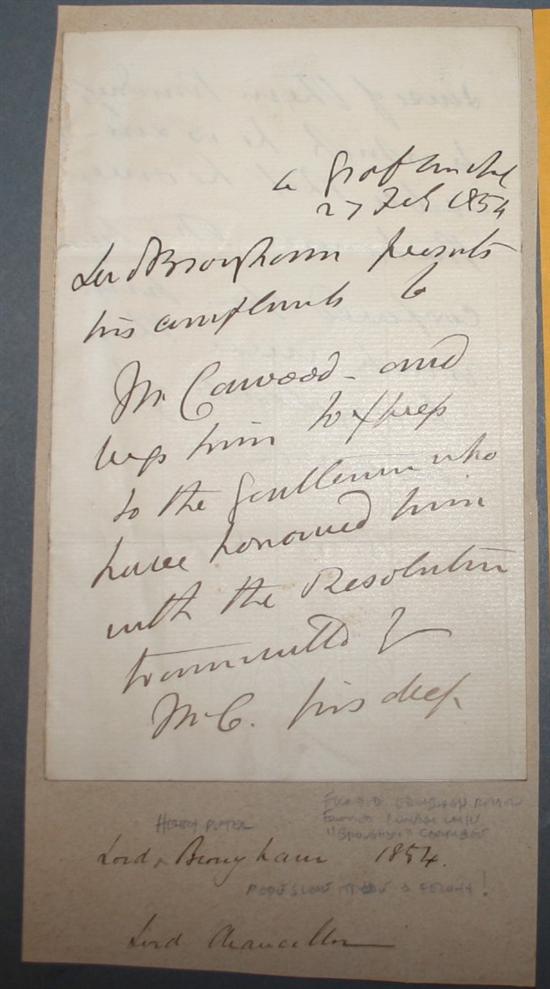 a Grafton St
27 Feb 1854
Lord Brougham presents
his compliments to
Mr Cawood - and
begs him to express
to the Gentlemen who
have honoured him
with the Resolution
transmitted by
Mr C. his deep
HENRY PETER
FOUNDED EDINBURGH REVIEW
FOUNDED LONDON UNIV
"BROUGHAM" CARRIAGE
Lord Brougham 1854.
MADE SLAVE TRADE A FELONY!
Lord Chancellor